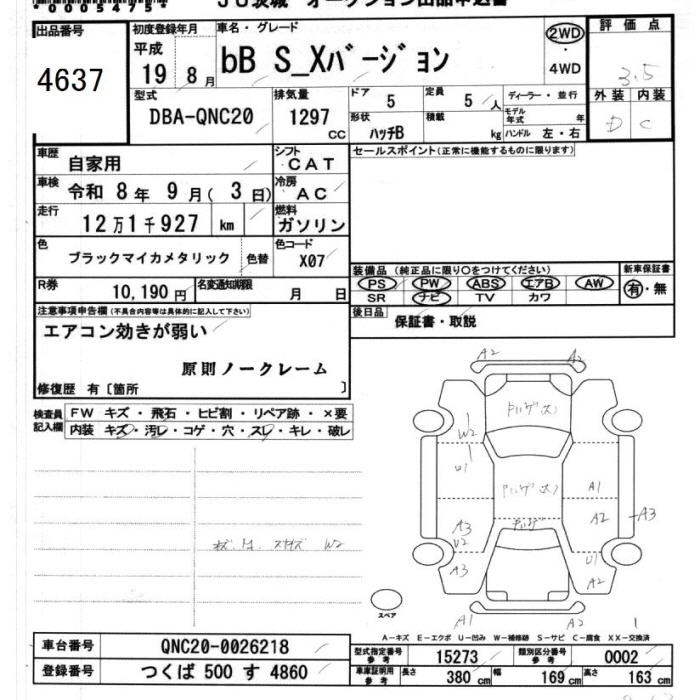 00054754
JU茨城 オークション出品申込書
出品番号 初度登録年月 車名・グレード 評価点
4637 平成 19年 8月 bB S_Xバージョン 2WD・4WD 3.5
型式 排気量 ドア 5 定員 5人 ディーラー・並行 外装 内装
DBA-QNC20 1297cc 形状 ハッチB 積載 kg モデル年式 年 ハンドル 左・右 D C
車歴 自家用 シフト CAT セールスポイント(正常に機能するものに限ります)
車検 令和 8年 9月(3日) 冷房 AC
走行 12万1千927 km 燃料 ガソリン
色 ブラックマイカメタリック 色替 色コード X07
R券 10,190円 名変通知期限 月 日
装備品(純正品に限り○をつけてください) 新車保証書
PS PW ABS エアB AW 有・無
SR ナビ TV カワ
後日品 保証書・取説
注意事項申告欄(不具合内容等は具体的に記入して下さい)
エアコン効きが弱い
原則ノークレーム
修復歴 有〔箇所 〕
検査員記入欄 FW キズ・飛石・ヒビ割・リペア跡・×要
内装 キズ・汚レ・コゲ・穴・スレ・キレ・破レ
A2 A2
W2
U1
A1
A2
A3
A3
U2
A3
U1
A2
A1
A2
W2
スペア
A-キズ E-エクボ U-凹み W-補修跡 S-サビ C-腐食 XX-交換済
車台番号 QNC20-0026218 型式指定番号 参考 15273 類別区分番号 参考 0002
登録番号 つくば 500 す 4860 車庫証明用 参考 長さ 380cm 幅 169cm 高さ 163cm